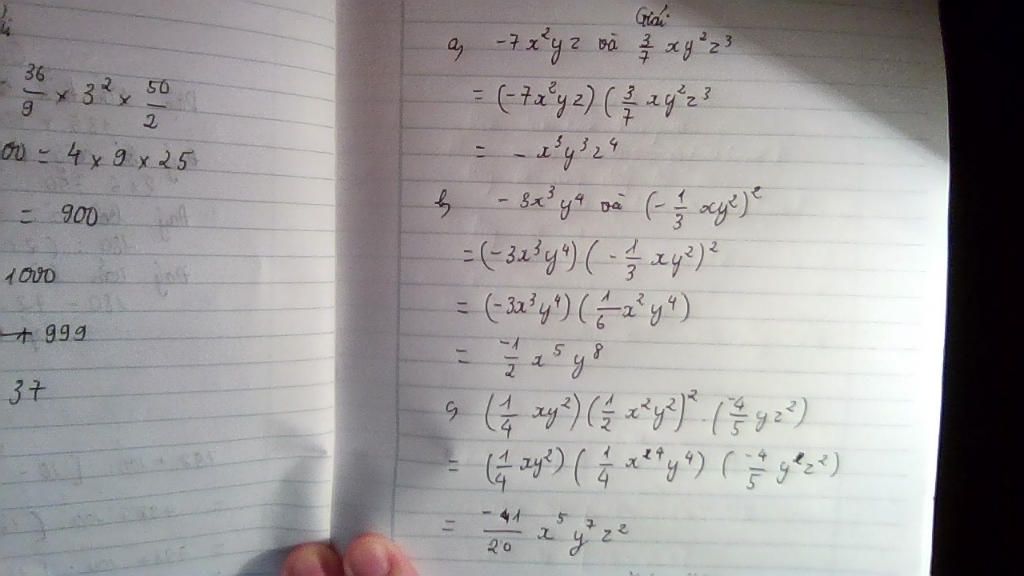 36/9 × 3² × 50/2
00 = 4 × 9 × 25
= 900
1000
+ 999
37
Giải:
a, -7x²yz và 3/7 xy²z³
= (-7x²yz) (3/7 xy²z³
= - x³y³z⁴
b, - 3x³y⁴ và (-1/3 xy²)²
= (-3x³y⁴) (-1/3 xy²)²
= (-3x³y⁴) (1/6 x²y⁴)
= -1/2 x⁵ y⁸
c, (1/4 xy²) (1/2 x²y²)² . (-4/5 yz²)
= (1/4 xy²) (1/4 x⁴y⁴) (-4/5 yz²)
= -1/20 x⁵ y⁷ z²